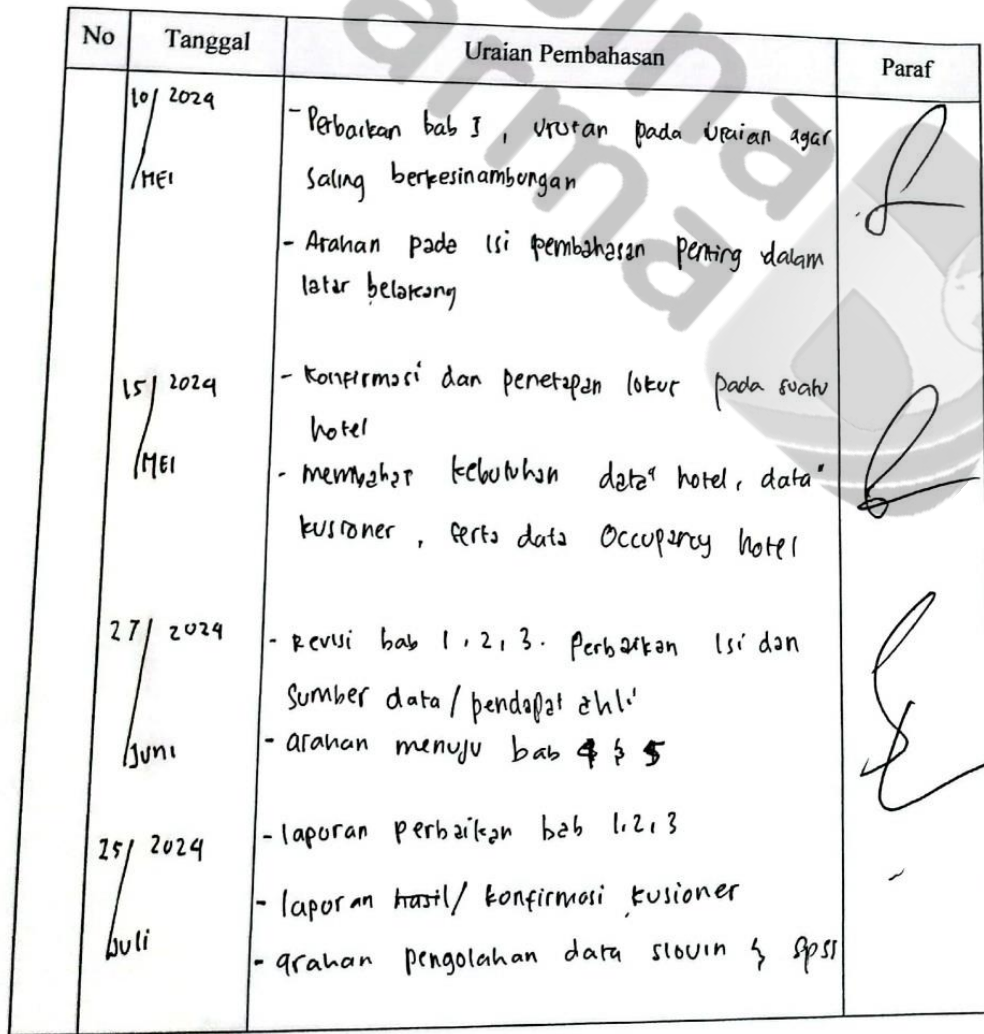 No Tanggal Uraian Pembahasan Paraf
10/ 2024
/MEI
- Perbaikan bab I, Urutan pada Uraian agar
Saling berkesinambungan
- Arahan pada Isi pembahasan penting dalam
latar belakang
15/ 2024
/MEI
- Konfirmasi dan penetapan lokus pada suatu
hotel
- membahas kebutuhan data" hotel, data"
kusioner, serta data Occupancy hotel
27/ 2024
/Juni
- Revisi bab 1, 2, 3. Perbaikan Isi dan
Sumber data / pendapat ahli
- arahan menuju bab 4 & 5
25/ 2024
/Juli
- laporan perbaikan bab 1, 2, 3
- laporan hasil/ konfirmasi kusioner
- arahan pengolahan data slovin & spss